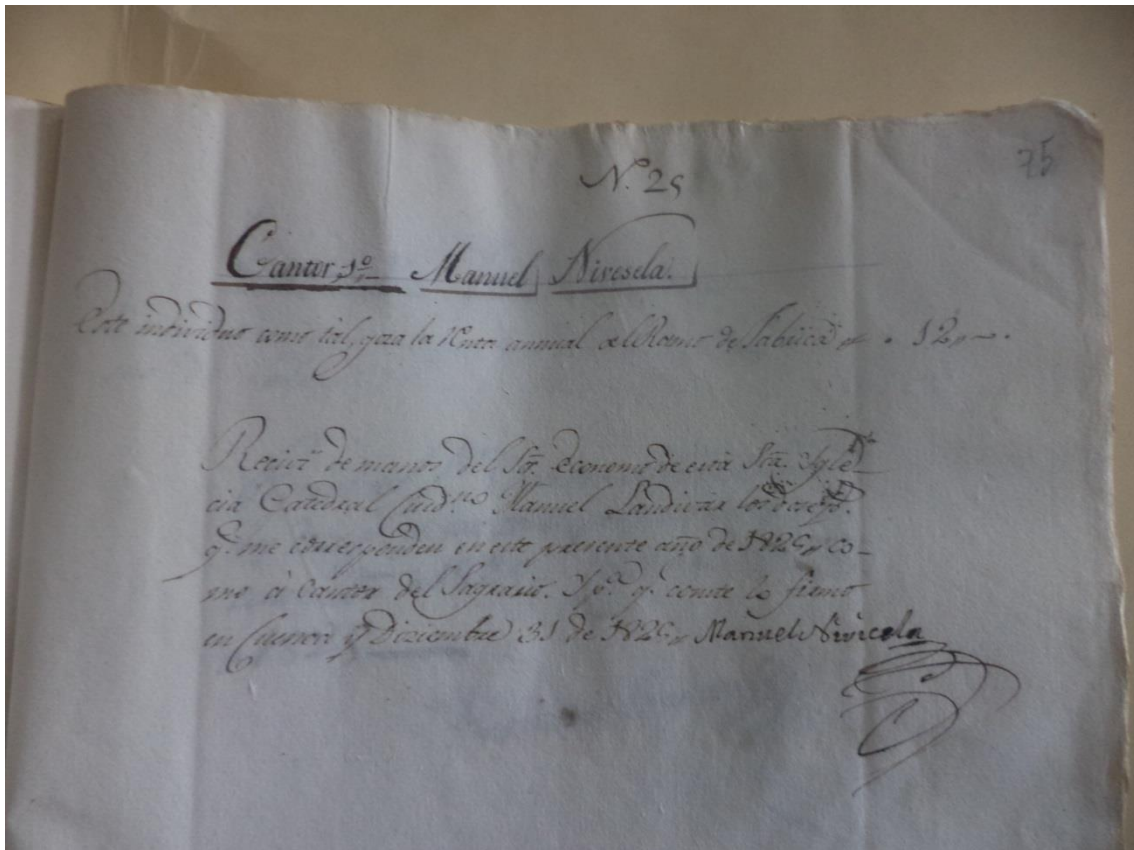 75
N.º 25
Cantor, 1º Manuel Nivesela.
Este individuo como tal, goza la renta annual del Ramo de Fabrica 12
Reciví de manos del Sor. Economo de esta Sta. Ygle-
cia Catedral Ciudno. Manuel Landivar los doce ps.
q. me corresponden en este presente año de 1825 co-
mo á Cantor del Sagrario. Y pa. q. conste lo firmo
en Cuenca y Diziembre 31 de 1825 Manuel Nivicela